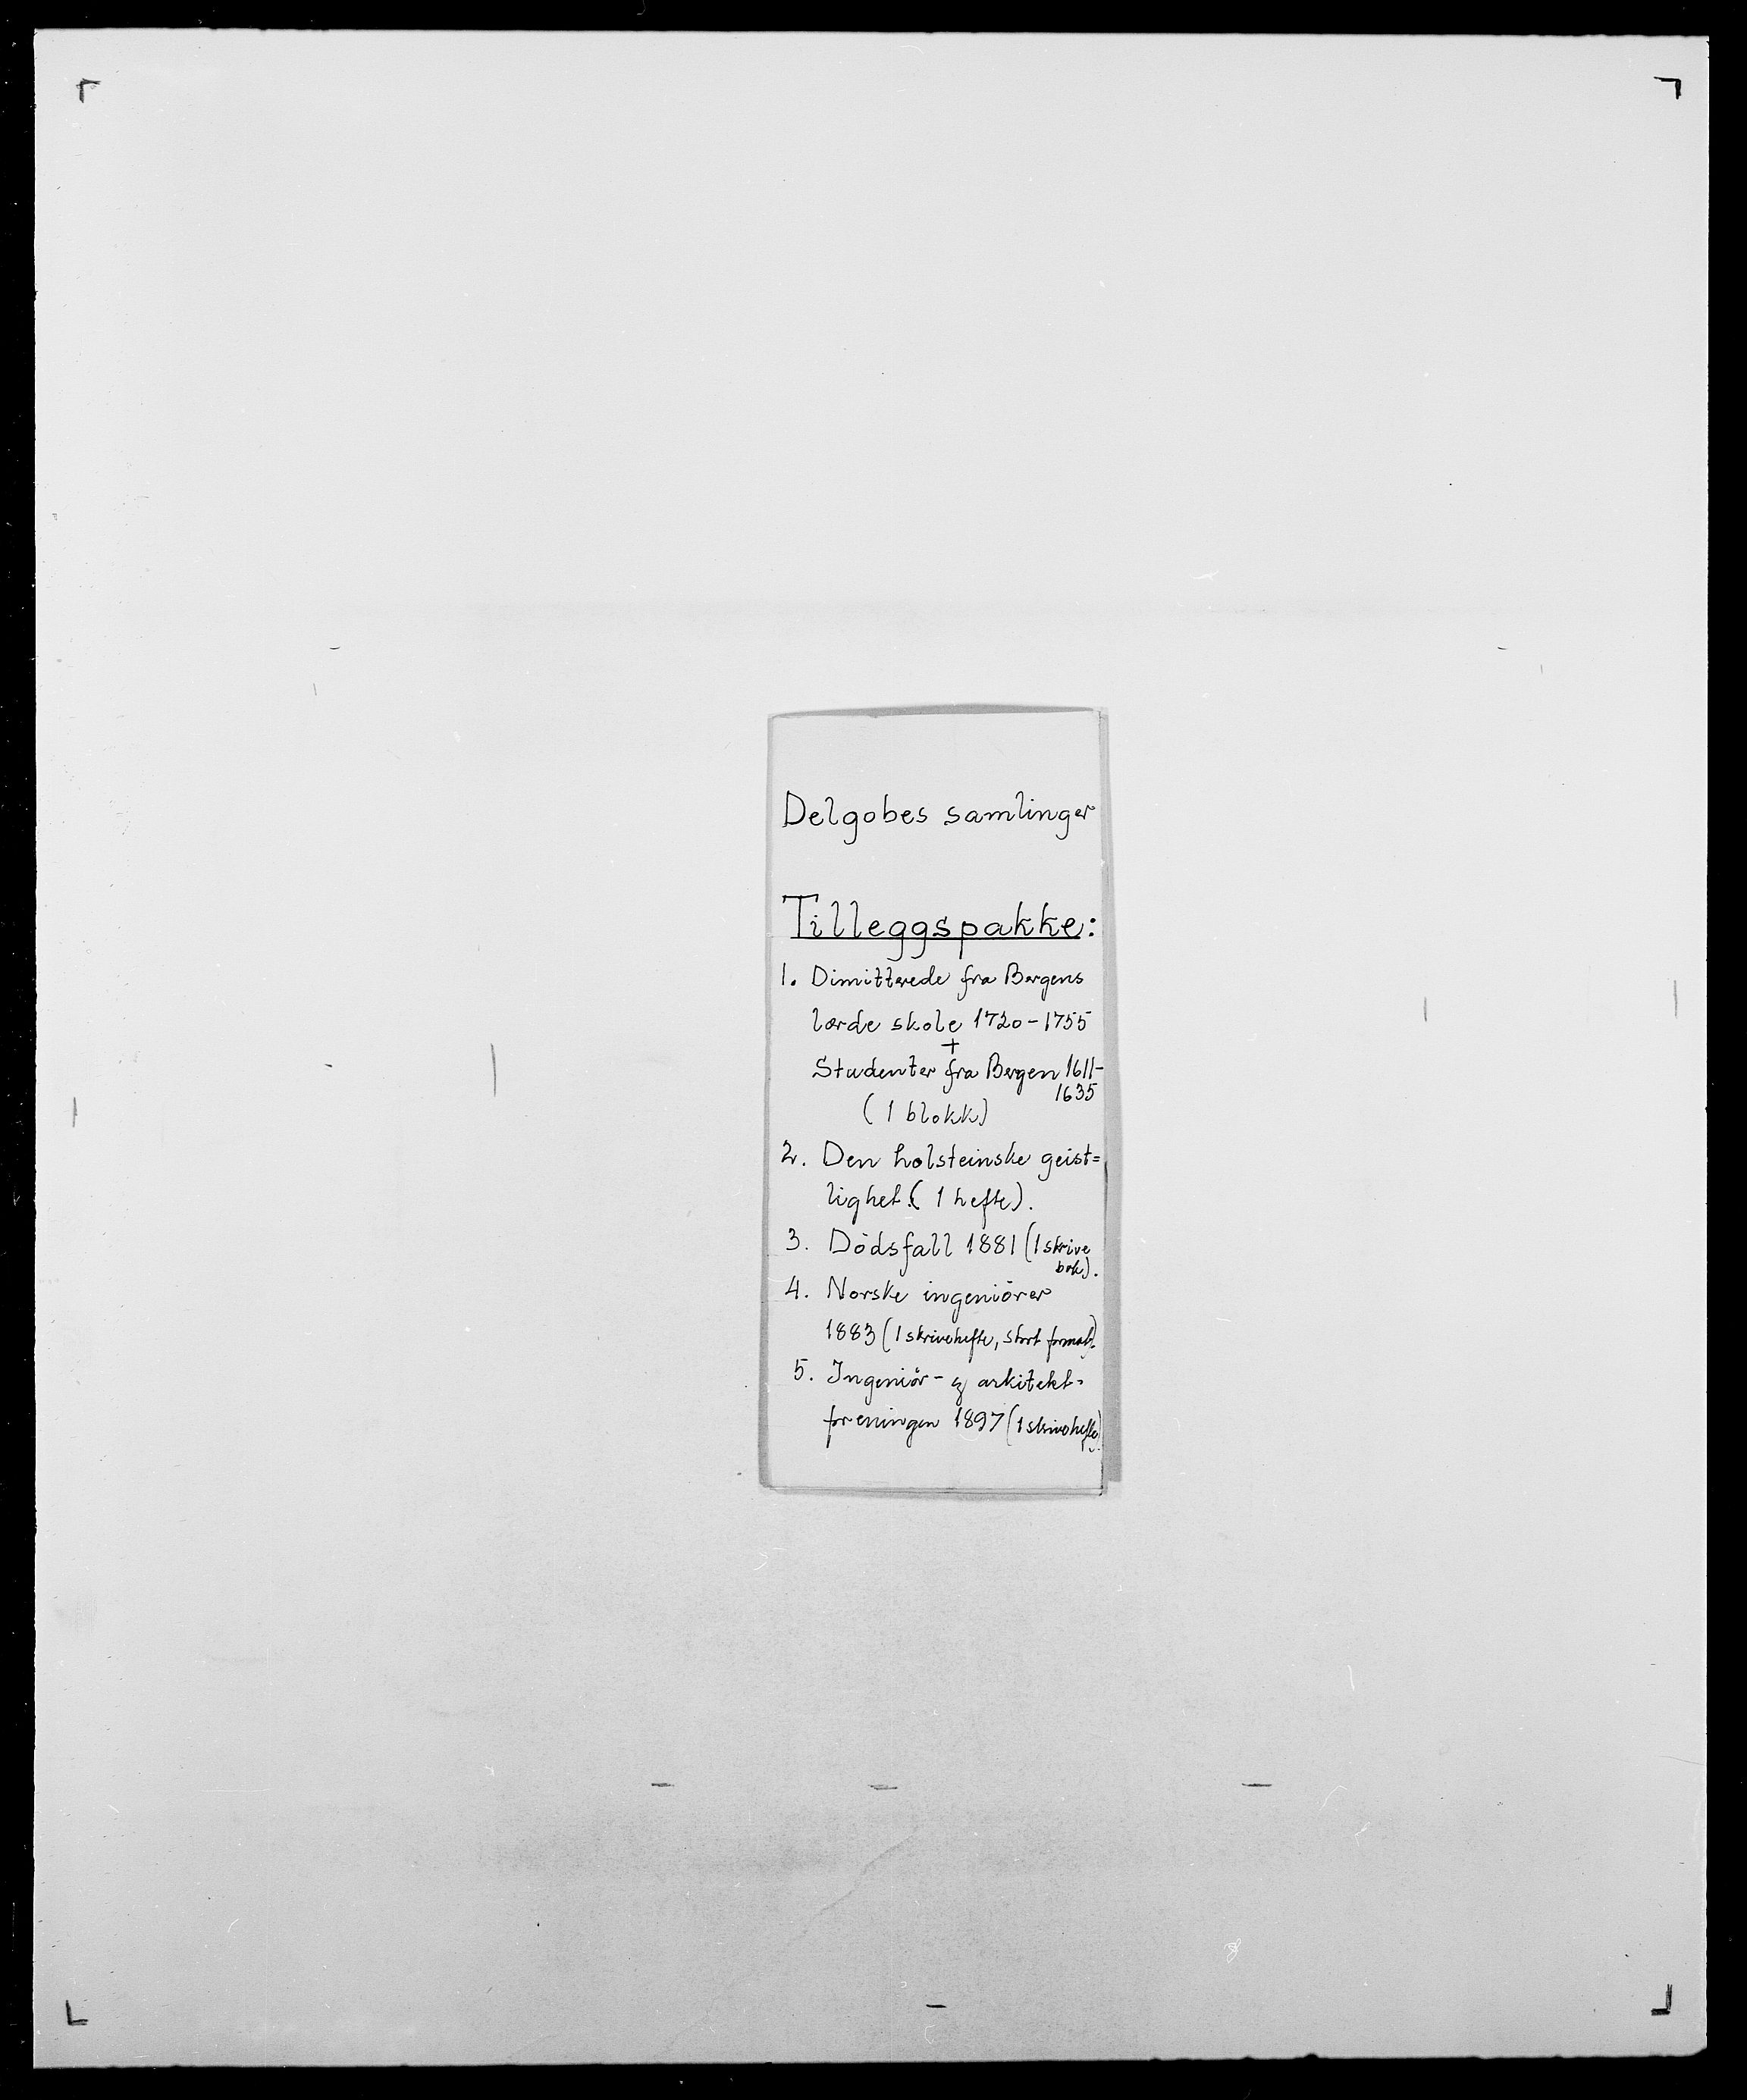 Delgobes samlinger
Tilleggspakke:
1. Dimitterede fra Bergens
lærde skole 1720-1755
+
Studenter fra Bergen 1611-
1635
(1 blokk)
2. Den holsteinske geist=
lighet. (1 hefte).
3. Dödsfall 1881 (1 skrive
bok).
4. Norske ingeniörer
1883 (1 skrivehefte, stort format).
5. Ingeniör- og arkitekt-
foreningen 1897 (1 skrivehefte).